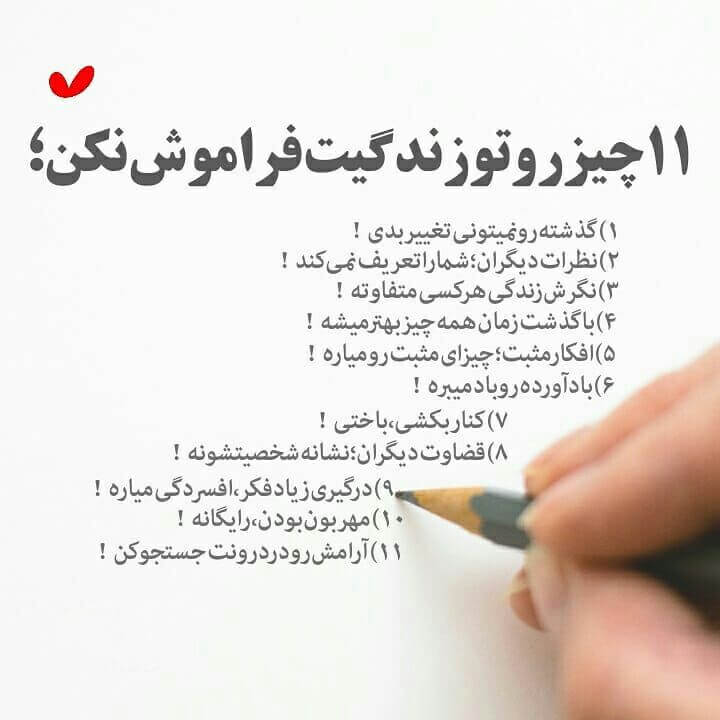 ۱۱ چیز رو تو زندگیت فراموش نکن؛
۱) گذشته رو نمیتونی تغییر بدی !
۲) نظرات دیگران؛ شما را تعریف نمی کند !
۳) نگرش زندگی هر کسی متفاوته !
۴) با گذشت زمان همه چیز بهتر میشه !
۵) افکار مثبت؛ چیزای مثبت رو میاره !
۶) باد آورده رو باد میبره !
۷) کنار بکشی، باختی !
۸) قضاوت دیگران؛ نشانه شخصیتشونه !
۹) درگیری زیاد فکر، افسردگی میاره !
۱۰) مهربون بودن، رایگانه !
۱۱) آرامش رو در درونت جستجو کن !